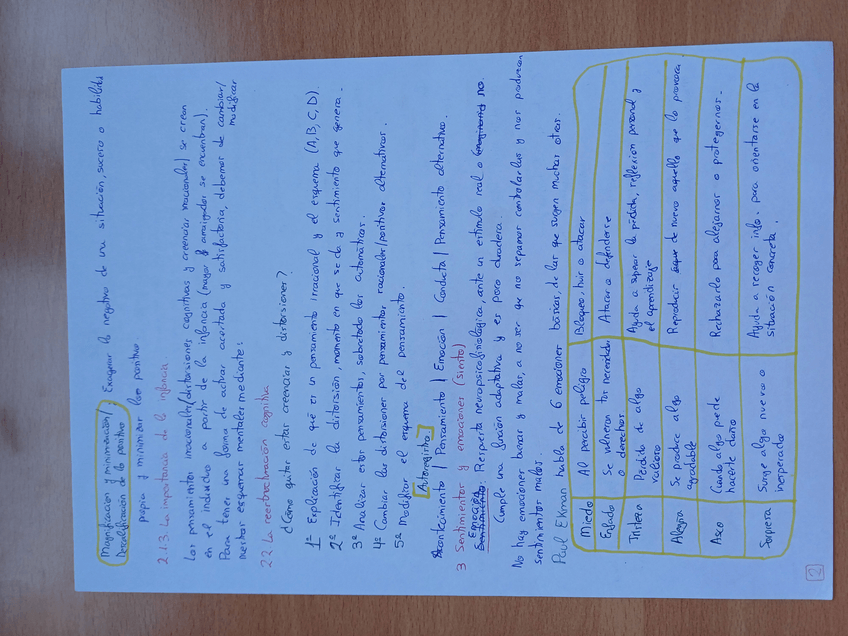 Magnificación y minimización/: Exagerar lo negativo de una situación, suceso o habilidad
Descalificación de lo positivo
propia y minimizar los positivo
2.1.3. La importancia de la infancia
Los pensamientos irracionales/distorsiones cognitivas y creencias irracionales) se crean
en el individuo a partir de la infancia (mayor y arraigados se encuentran).
Para tener una forma de actuar acertada y satisfactoria, debemos de cambiar/
modificar
nuestros esquemas mentales mediante:
2.2 La reestructuración cognitiva
¿Cómo quitar estas creencias y distorsiones?
1º Explicación de qué es un pensamiento irracional y el esquema (A, B, C, D).
2º Identificar la distorsión, momento en que se da y sentimiento que genera.
3º Analizar estos pensamientos, sobretodo los automáticos.
4º Cambiar las distorsiones por pensamientos racionales/positivos alternativos.
5º Modificar el esquema del pensamiento.
Autoregistro
Acontecimiento | Pensamiento | Emoción | Conducta | Pensamiento alternativo.
3 Sentimientos y emociones (siento)
Emoción: Respuesta neuropsicofisiológica, ante un estímulo real o no.
Cumple una función adaptativa y es poco duradera.
No hay emociones buenas y malas, a no ser que no sepamos controlarlas y nos produzcan
sentimientos malos.
Paul Ekman habla de 6 emociones básicas, de las que surgen muchas otras.
Miedo Al percibir peligro Bloqueo, huir o atacar
Enfado Se vulneran tus necesidades o derechos Atacar o defenderse
Tristeza Pérdida de algo valioso Ayuda a superar la pérdida, reflexión personal y el aprendizaje
Alegría Se produce algo agradable Reproducir de nuevo aquello que lo provoca
Asco Cuando algo puede hacerte daño Rechazarlo para alejarnos o protegernos.
Sorpresa Surge algo nuevo o inesperado Ayuda a recoger info. para orientarse en la situación concreta.
2